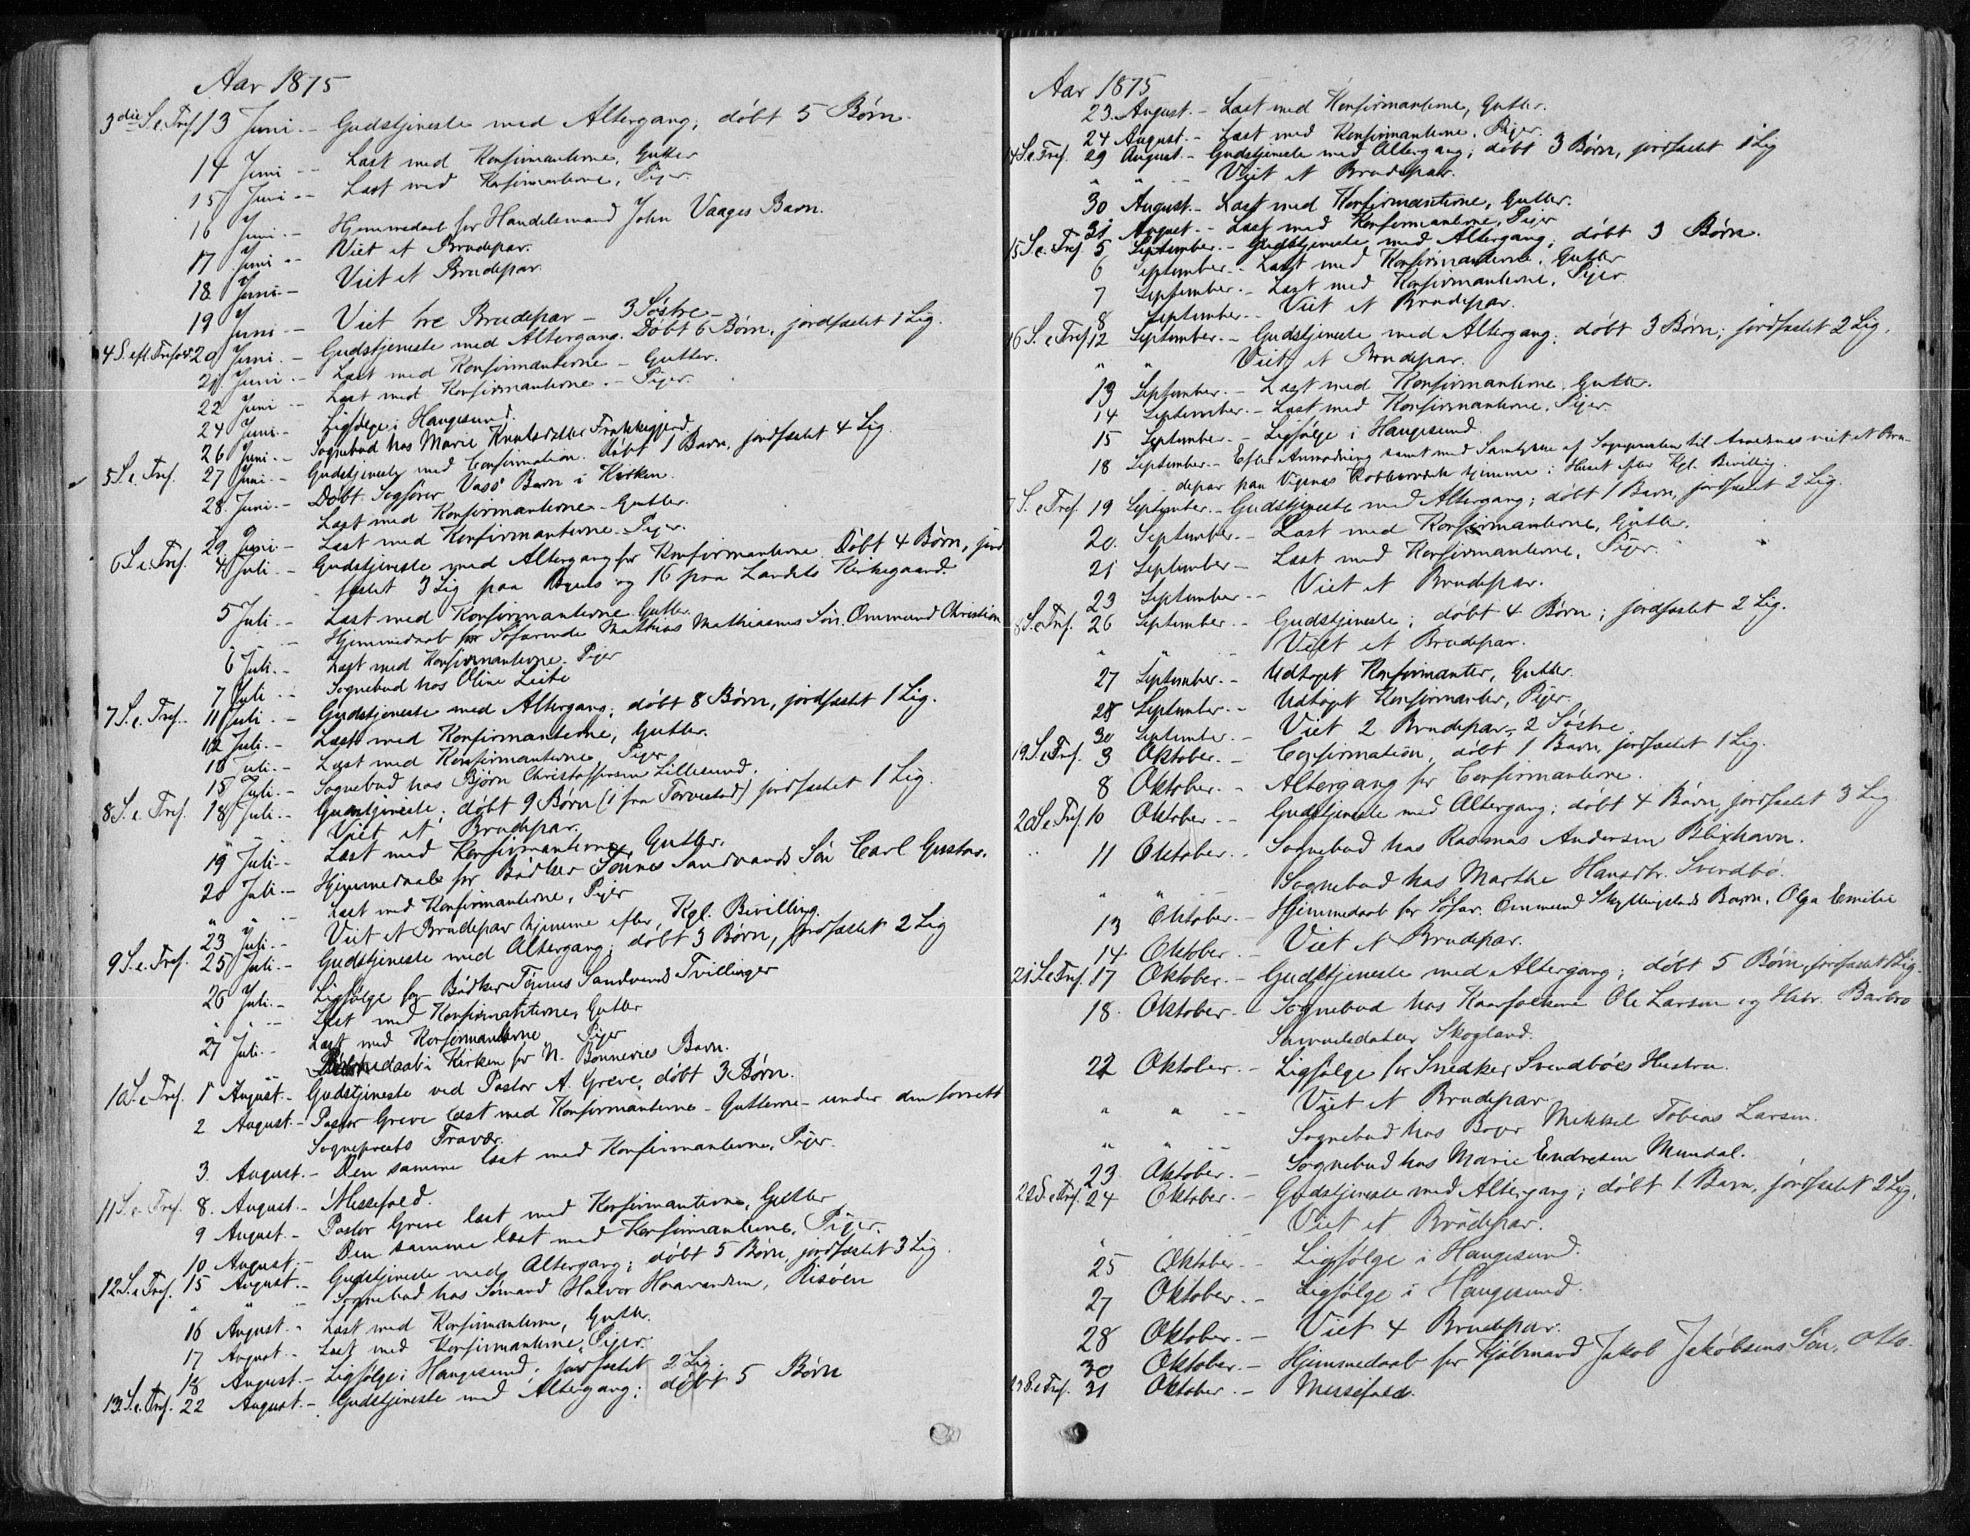 Aar 1875
3die S. e. Tref. 13 Juni -- Gudstjeneste med Altergang; døbt 5 Børn.
14 Juni -- Læst med Konfirmanterne, Gutter
15 Juni -- Læst med Konfirmanterne, Piger.
16 Juni -- Hjemmedaab for Handelsmand John Vaages Barn.
17 Juni -- Viet et Brudepar.
18 Juni -- Viet et Brudepar
19 Juni -- Viet tre Brudepar - 3 Søstre -
4 S. eft. Trefold. 20 Juni -- Gudstjeneste med Altergang. Døbt 6 Børn, jordfæstet 1 Lig.
21 Juni -- Læst med Konfirmanterne - Gutter.
22 Juni -- Læst med Konfirmanterne - Piger.
24 Juni - Ligfølge i Haugesund.
26 Juni -- Sognebud hos Marie Knutsdatter
5 S. e. Tref. 27 Juni -- Gudstjeneste med Confirmation. døbt 1 Barn, jordfæstet 4 Lig.
28 Juni -- Døbt Sagfører Vass' Barn i Kirken.
Læst med Konfirmanterne - Gutter.
29 Juni - Læst med Konfirmanterne - Piger.
6 S. e. Tref. 4 Juli -- Gudstjeneste med Altergang for Konfirmanterne. Døbt 4 Børn, jord
fæstet 3 Lig paa Byens og 16 paa Landets Kirkegaard.
5 Juli -- Læst med Konfirmanterne Gutter.
" " -- Hjemmedaab for Søfarende Mathias Mathiasens Søn Ommund Christian
6 Juli -- Læst med Konfirmanterne. Piger
7 Juli -- Sognebud hos Oline Leite
7 S. e. Tref. 11 Juli -- Gudstjeneste med Altergang; døbt 8 Børn, jordfæstet 1 Lig.
12 Juli -- Læst med Konfirmanterne, Gutter.
13 Juli -- Læst med Konfirmanterne, Piger
15 Juli -- Sognebud hos Bjørn Christoffersen Lillesund.
8 S. e. Tref. 18 Juli -- Gudstjeneste; døbt 9 Børn (1 fra Torvestad) jordfæstet 1 Lig.
" " Viet et Brudepar.
19 Juli -- Læst med Konfirmanterne, Gutter.
20 Juli -- Hjemmedaab for Bødker Tønnes Sandvands Søn Carl Gustav.
" " -- Læst med Konfirmanterne, Piger
23 Juli -- Viet et Brudepar hjemme efter Kgl. Bevilling.
9 S. e. Tref. 25 Juli -- Gudstjeneste med Altergang; døbt 3 Børn, jordfæstet 2 Lig
26 Juli -- Ligfølge for Bødker Tønnes Sandvands Tvillinger
" " -- Læst med Konfirmanterne, Gutter
27 Juli -- Læst med Konfirmanterne Piger
" " -- daab i Kirken for N. Bonnevies Barn.
10 S. e. Tref. 1 August -- Gudstjeneste ved Pastor A. Greve, døbt 3 Børn.
2 August -- Pastor Greve læst med Konfirmanterne - Gutterne - under den
Sognepræsts Fravær.
3. August -- Den samme læst med Konfirmanterne, Piger.
11 S. e. Tref. 8. August -- Messefald.
9 August -- Pastor Greve læst med Konfirmanterne, Gutter
10 August -- Den samme læst med Konfirmanterne, Piger.
12 S. e. Tref. 15 August -- Gudstjeneste med Altergang; døbt 5 Børn, jordfæstet 3 Lig.
" " -- Sognebud hos Sømand Halvor Risøen
16 August -- Læst med Konfirmanterne, Gutter.
17 August -- Læst med Konfirmanterne, Piger.
18 August -- Ligfølge i Haugesund; jordfæstet 2 Lig.
13. S. e. Tref. 22 August -- Gudstjeneste med Altergang; døbt 5 Børn
Aar 1875
23 August -- Læst med Konfirmanterne, Gutter.
24 August -- Læst med Konfirmanterne, Piger.
14 S. e. Tref. 29 August -- Gudstjeneste med Altergang; døbt 3 Børn, jordfæstet 1 Lig
" " -- Viet et Brudepar.
30 August -- Læst med Konfirmanterne, Gutter.
31 August -- Læst med Konfirmanterne, Piger
15 S. e. Tref. 5 September -- Gudstjeneste med Altergang; døbt 3 Børn.
6 September -- Læst med Konfirmanterne, Gutter
7 September -- Læst med Konfirmanterne, Piger
8 September -- Viet et Brudepar.
16 S. e. Tref. 12 September -- Gudstjeneste med Altergang; døbt 3 Børn; jordfæstet 2 Lig.
" " Viet et Brudepar.
13 September -- Læst med Konfirmanterne, Gutter.
14 September -- Læst med Konfirmanterne, Piger
15 September -- Ligfølge i Haugesund.
18 September -- Efter Anmodning samt med Samtykke af Sognepresten til Avaldsnes viet et Bru-
depar paa Vigsnæs Kobberværk hjemme i Huset efter Kgl. Bevillig.
7 S. e. Tref. 19 September -- Gudstjeneste med Altergang; døbt 1 Barn, jordfæstet 2 Lig.
20. September -- Læst med Konfirmanterne, Gutter.
21 September -- Læst med Konfirmanterne, Piger.
23 September -- Viet et Brudepar.
8 S. e. Tref. 26 September -- Gudstjeneste; døbt 4 Børn; jordfæstet 2 Lig.
" " -- Viet et Brudepar.
27 September -- Udtaget Konfirmanter, Gutter.
28 September -- Udtaget Konfirmanter, Piger
30 September -- Viet 2 Brudepar, 2 Søstre.
19 S. e. Tref. 3 Oktober -- Confirmation, døbt 1 Barn, jordfæstet 1 Lig.
8 Oktober -- Altergang for Confirmanterne.
20 S. e. Tref. 10 Oktober -- Gudstjeneste med Altergang; døbt 4 Børn, jordfæstet 3 Lig
11 Oktober -- Sognebud hos Rasmus Andersen Bleihavn.
" " -- Sognebud hos Marthe Hansdtr. Svendbø.
13 Oktober -- Hjemmedaab for Søfar. Ommund Skyllingstads Barn, Olga Emilie
14 Oktober -- Viet et Brudepar.
21 S. e. Tref. 17 Oktober -- Gudstjeneste med Altergang; døbt 5 Børn, jordfæstet 1 Lig.
18 Oktober -- Sognebud hos Kaarfolkene Ole Larsen og Hstr. Barbro
Samuelsdatter Skogland.
22 Oktober -- Ligfølge for Snedker Svendbøes Hustru.
" " -- Viet et Brudepar
" " -- Sognebud hos Mikkel Tobias Larsen.
23 Oktober -- Sognebud hos Marie Endresen Mundal.
22 S. e. Tref. 24 Oktober -- Gudstjeneste med Altergang; døbt 1 Barn, jordfæstet 2 Lig.
" " Viet et Brudepar.
25 Oktober -- Ligfølge i Haugesund.
27 Oktober -- Ligfølge i Haugesund.
28 Oktober -- Viet 4 Brudepar.
30 Oktober -- Hjemmedaab for Kjøbmand Jakob Jakobsens Søn, Otto.
23 S. e. Tref. 31 Oktober -- Messefald.